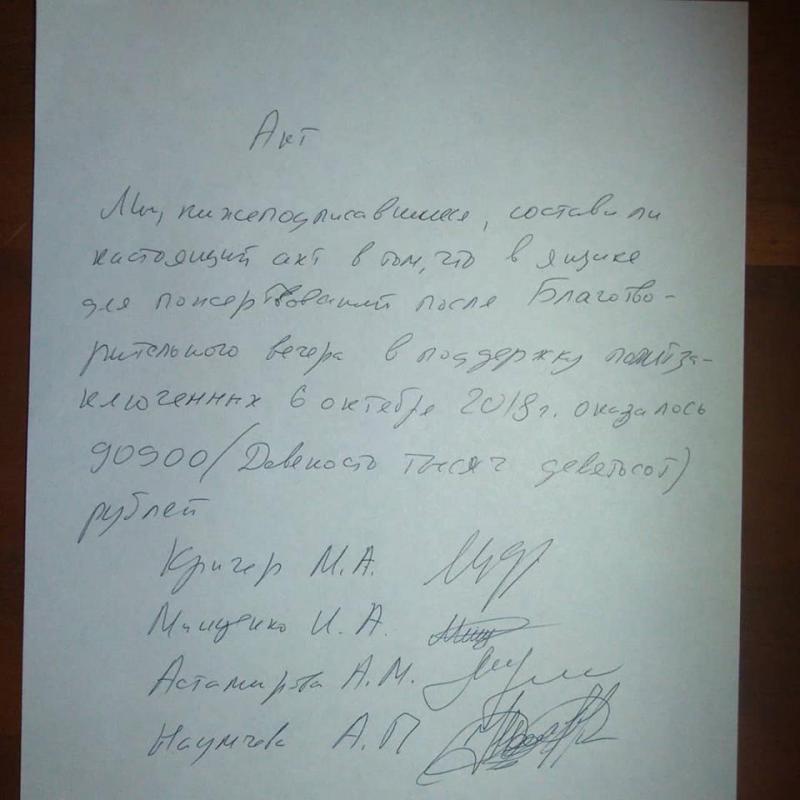 Акт
Мы, нижеподписавшиеся, составили
настоящий акт в том, что в ящике
для пожертвований после Благотво-
рительного вечера в поддержку политза-
ключенных 6 октября 2018 г. оказалось
90900 (Девеносто тысяч девятьсот)
рублей
Кригер М.А.
Мищенко И.А.
Астамирова А.М.
Наумчева А.П